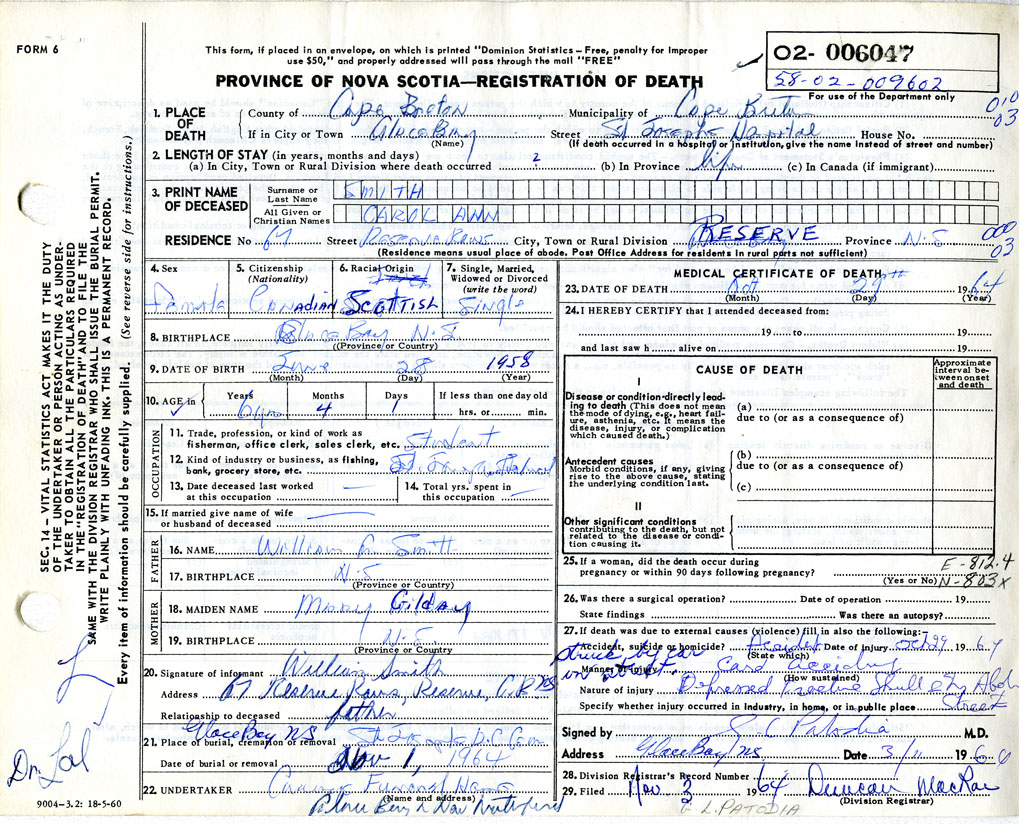 FORM 6
This form, if placed in an envelope, on which is printed "Dominion Statistics – Free, penalty for improper
use $50," and properly addressed will pass through the mail "FREE"
PROVINCE OF NOVA SCOTIA—REGISTRATION OF DEATH
02- 006047
58-02-009602
For use of the Department only
010
03
1. PLACE OF DEATH
County of Cape Breton Municipality of Cape Breton
If in City or Town Glace Bay Street St Josephs Hospital House No.
(Name) (If death occurred in a hospital or institution, give the name instead of street and number)
2. LENGTH OF STAY (in years, months and days)
(a) In City, Town or Rural Division where death occurred 2 (b) In Province life (c) In Canada (if immigrant)
3. PRINT NAME OF DECEASED
Surname or Last Name SMITH
All Given or Christian Names CAROL ANN
RESIDENCE No 67 Street Reserve Rows City, Town or Rural Division RESERVE Province N.S
000
03
(Residence means usual place of abode. Post Office Address for residents in rural parts not sufficient)
4. Sex Female
5. Citizenship (Nationality) Canadian
6. Racial Origin Scottish
7. Single, Married, Widowed or Divorced (write the word) Single
8. BIRTHPLACE Glace Bay N.S
(Province or Country)
9. DATE OF BIRTH June 28 1958
(Month) (Day) (Year)
10. AGE in Years 6 Months 4 Days 1 If less than one day old
hrs. or min.
OCCUPATION
11. Trade, profession, or kind of work as
fisherman, office clerk, sales clerk, etc. Student
12. Kind of industry or business, as fishing,
bank, grocery store, etc. St.
13. Date deceased last worked
at this occupation
14. Total yrs. spent in
this occupation
15. If married give name of wife
or husband of deceased
FATHER
16. NAME William Smith
17. BIRTHPLACE N.S
(Province or Country)
MOTHER
18. MAIDEN NAME Mary Gilday
19. BIRTHPLACE N.S.
(Province or Country)
20. Signature of informant William Smith
Address 67 Reserve Rows, Reserve, C.B NS
Relationship to deceased father
Glace Bay NS
21. Place of burial, cremation or removal
Date of burial or removal Nov 1, 1964
22. UNDERTAKER Funeral Home
(Name and address)
MEDICAL CERTIFICATE OF DEATH
23. DATE OF DEATH Oct 29th 1964
(Month) (Day) (Year)
24. I HEREBY CERTIFY that I attended deceased from:
19 to 19
and last saw h alive on 19
CAUSE OF DEATH
Approximate interval between onset and death
I
Disease or condition directly leading to death (This does not mean the mode of dying, e.g., heart failure, asthenia, etc. It means the disease, injury, or complication which caused death.)
(a)
due to (or as a consequence of)
Antecedent causes
Morbid conditions, if any, giving rise to the above cause, stating the underlying condition last.
(b)
due to (or as a consequence of)
(c)
II
Other significant conditions
contributing to the death, but not related to the disease or condition causing it.
25. If a woman, did the death occur during
pregnancy or within 90 days following pregnancy?
(Yes or No)
E-812.4
N-803X
26. Was there a surgical operation? Date of operation 19
State findings Was there an autopsy?
27. If death was due to external causes (violence) fill in also the following:-
Accident, suicide or homicide? Accident Date of injury Oct 29 1964
(State which)
struck by car
on street.
Manner of injury Card Accident
(How sustained)
Nature of injury Depressed Skull
Specify whether injury occurred in industry, in home, or in public place Street
Signed by Patodia M.D.
Address Glace Bay NS Date 3/11 196
28. Division Registrar's Record Number
29. Filed Nov. 3 1964 Duncan MacRae
(Division Registrar)
L. PATODIA
SEC. 14 – VITAL STATISTICS ACT MAKES IT THE DUTY
OF THE UNDERTAKER OR PERSON ACTING AS UNDER-
TAKER TO OBTAIN ALL THE PARTICULARS REQUIRED
IN THE "REGISTRATION OF DEATH" AND TO FILE THE
SAME WITH THE DIVISION REGISTRAR WHO SHALL ISSUE THE BURIAL PERMIT.
WRITE PLAINLY WITH UNFADING INK. THIS IS A PERMANENT RECORD.
Every item of information should be carefully supplied. (See reverse side for instructions.)
Dr. Lal
9004-3.2: 18-5-60